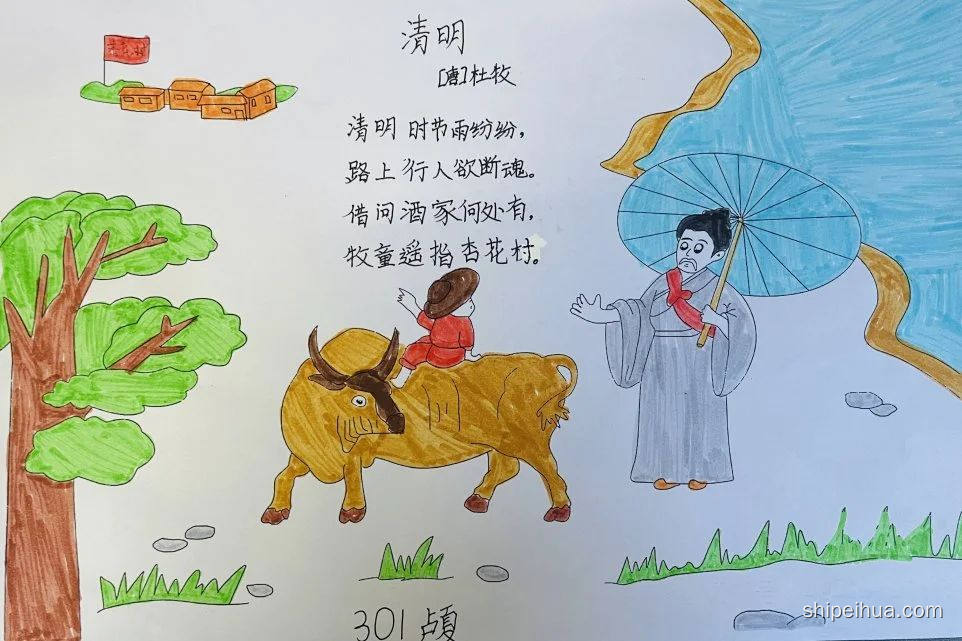 清明
[唐]杜牧
清明时节雨纷纷，
路上行人欲断魂。
借问酒家何处有，
牧童遥指杏花村。
301
shipeihua.com